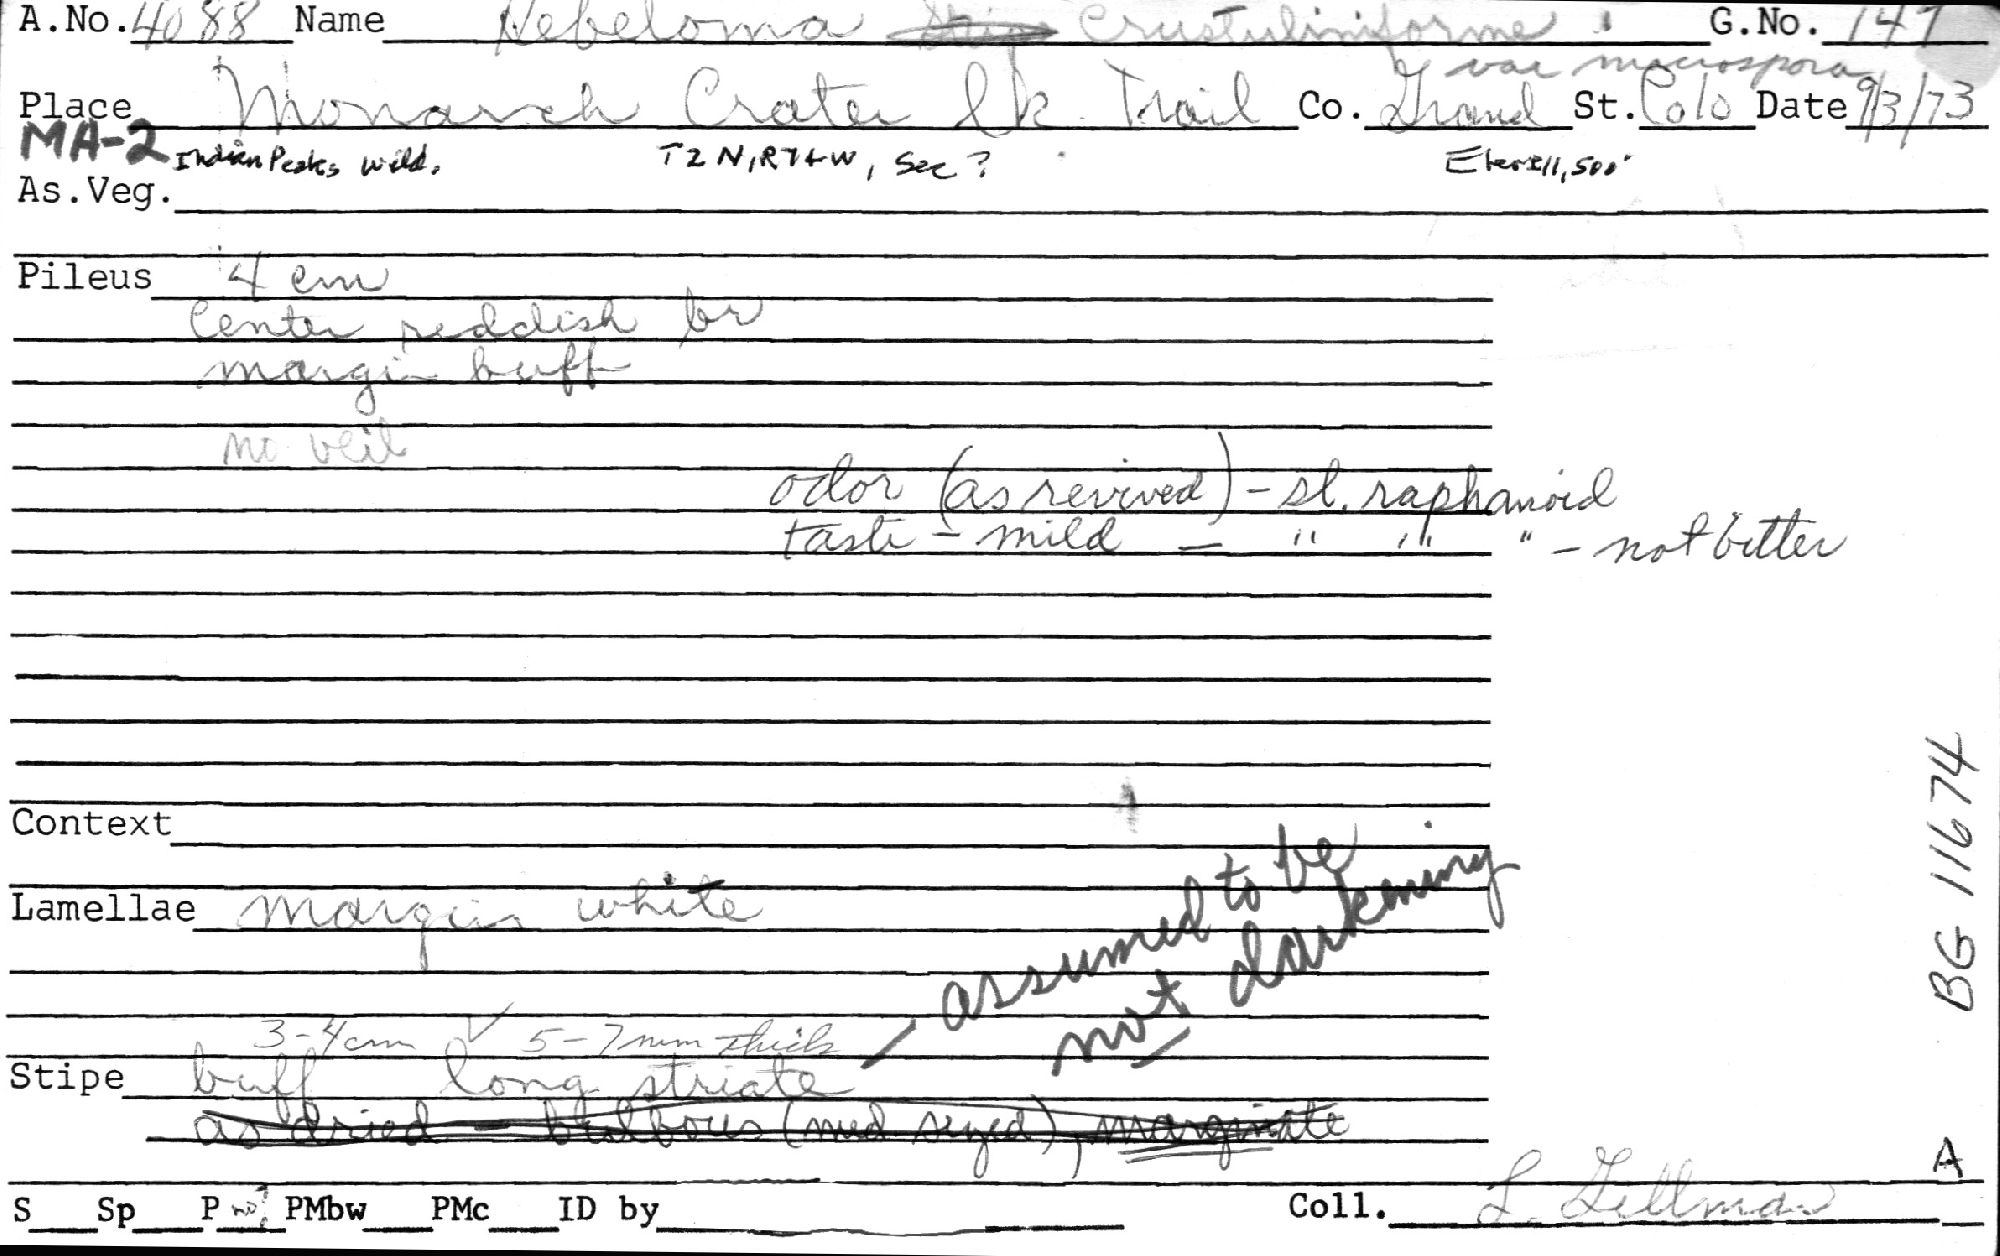 A.No. 4088 Name Hebeloma crustuliniforme G.No. 147
var macrospora
Place Monarch Crater Lk Trail Co. Grand St. Colo Date 9/3/73
MA-2 Indian Peaks Wild. T2N, R74W, Sec ? Elev. 11,500'
As.Veg.
Pileus 4 cm
Center reddish br
margin buff
no veil
odor (as revived) - sl. raphanoid
taste - mild - " " " - not bitter
Context
Lamellae margin white
assumed to be
not darkening
3-4cm ✓ 5-7mm thick
Stipe buff long. striate
as dried - bulbous (med sized), marginate
S Sp P no? PMbw PMc ID by Coll. L. Gillman
A
BG 11674